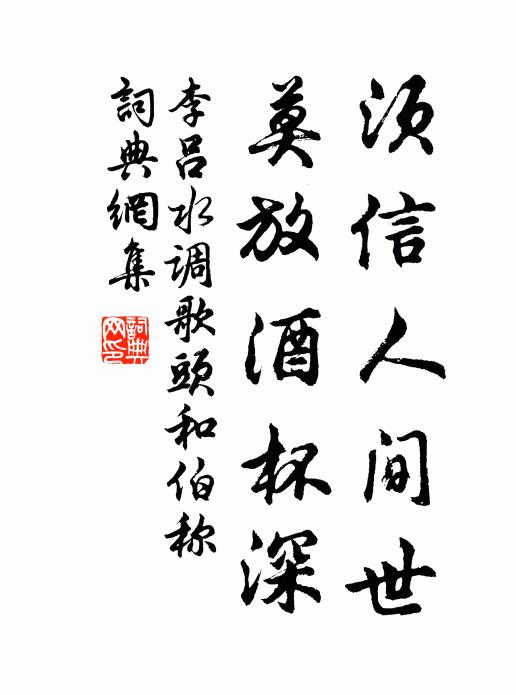 须信人间世
莫放酒杯深
李吕水调歌頭和伯称
詞典網集
詞典网印